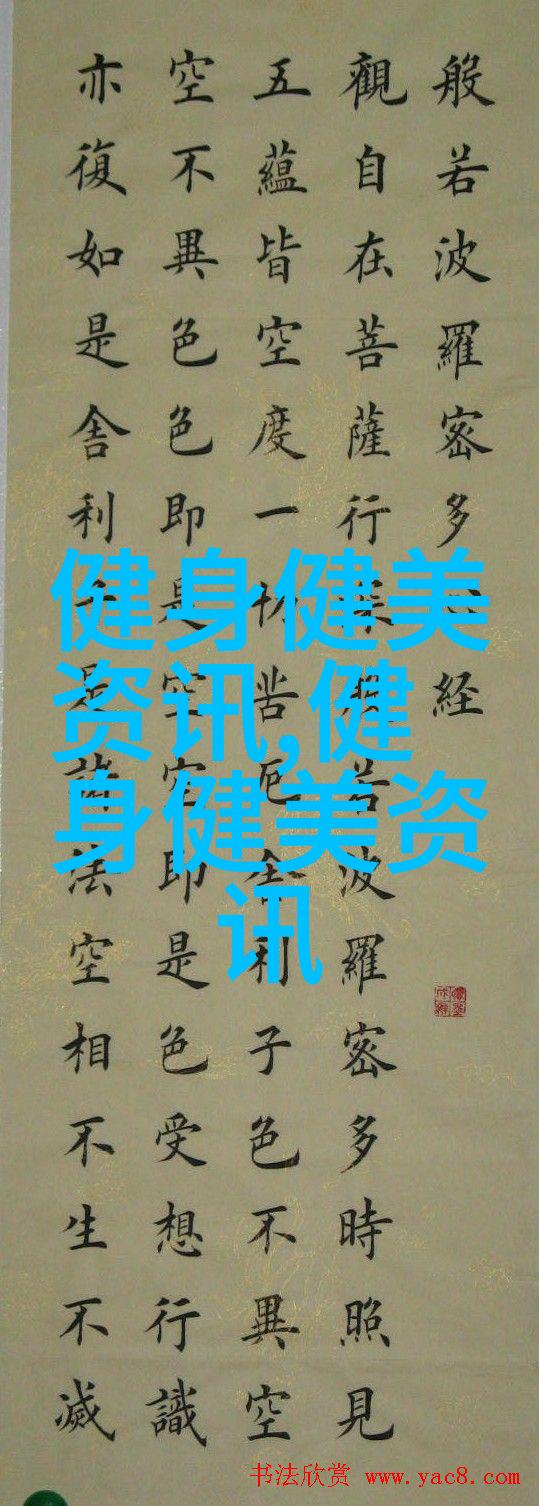 般若波羅密多心経
觀自在菩薩行深般若波羅密多時照見
五蘊皆空度一切苦厄舎利子色不異空
空不異色色即是空空即是色受想行識
亦復如是舎利子是諸法空相不生不滅
健身健美
资讯,健
身健美资
讯
书法欣赏 www.yac8.com